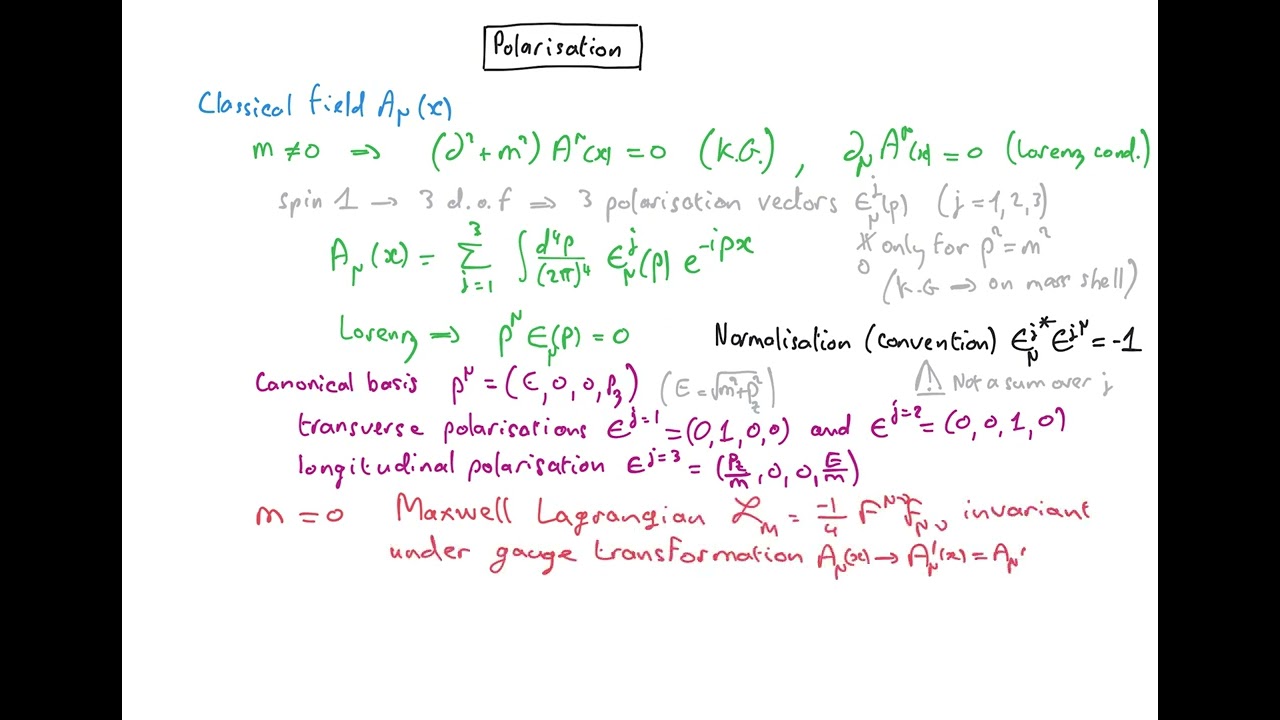 Polarisation
Classical field A_μ(x)
m ≠ 0 ⇒ (∂² + m²) A^μ(x) = 0 (K.G.) , ∂_μ A^μ(x) = 0 (Lorenz cond.)
spin 1 → 3 d.o.f ⇒ 3 polarisation vectors ε^j_μ(p) (j = 1,2,3)
A_μ(x) = Σ_{j=1}^{3} ∫ d⁴p/(2π)⁴ ε^j_μ(p) e^{-ipx}
≠ 0 only for p² = m²
(K.G → on mass shell)
Lorenz ⇒ p^μ ε_μ(p) = 0
Normalisation (convention) ε^{j*}_μ ε^{jμ} = -1
⚠ Not a sum over j
Canonical basis p^μ = (E, 0, 0, p_z) (E = √(m² + p_z²))
transverse polarisations ε^{j=1} = (0,1,0,0) and ε^{j=2} = (0,0,1,0)
longitudinal polarisation ε^{j=3} = (p_z/m, 0, 0, E/m)
m = 0 Maxwell Lagrangian ℒ_M = -1/4 F^{μν} F_{μν} invariant
under gauge transformation A_μ(x) → A'_μ(x) = A_μ